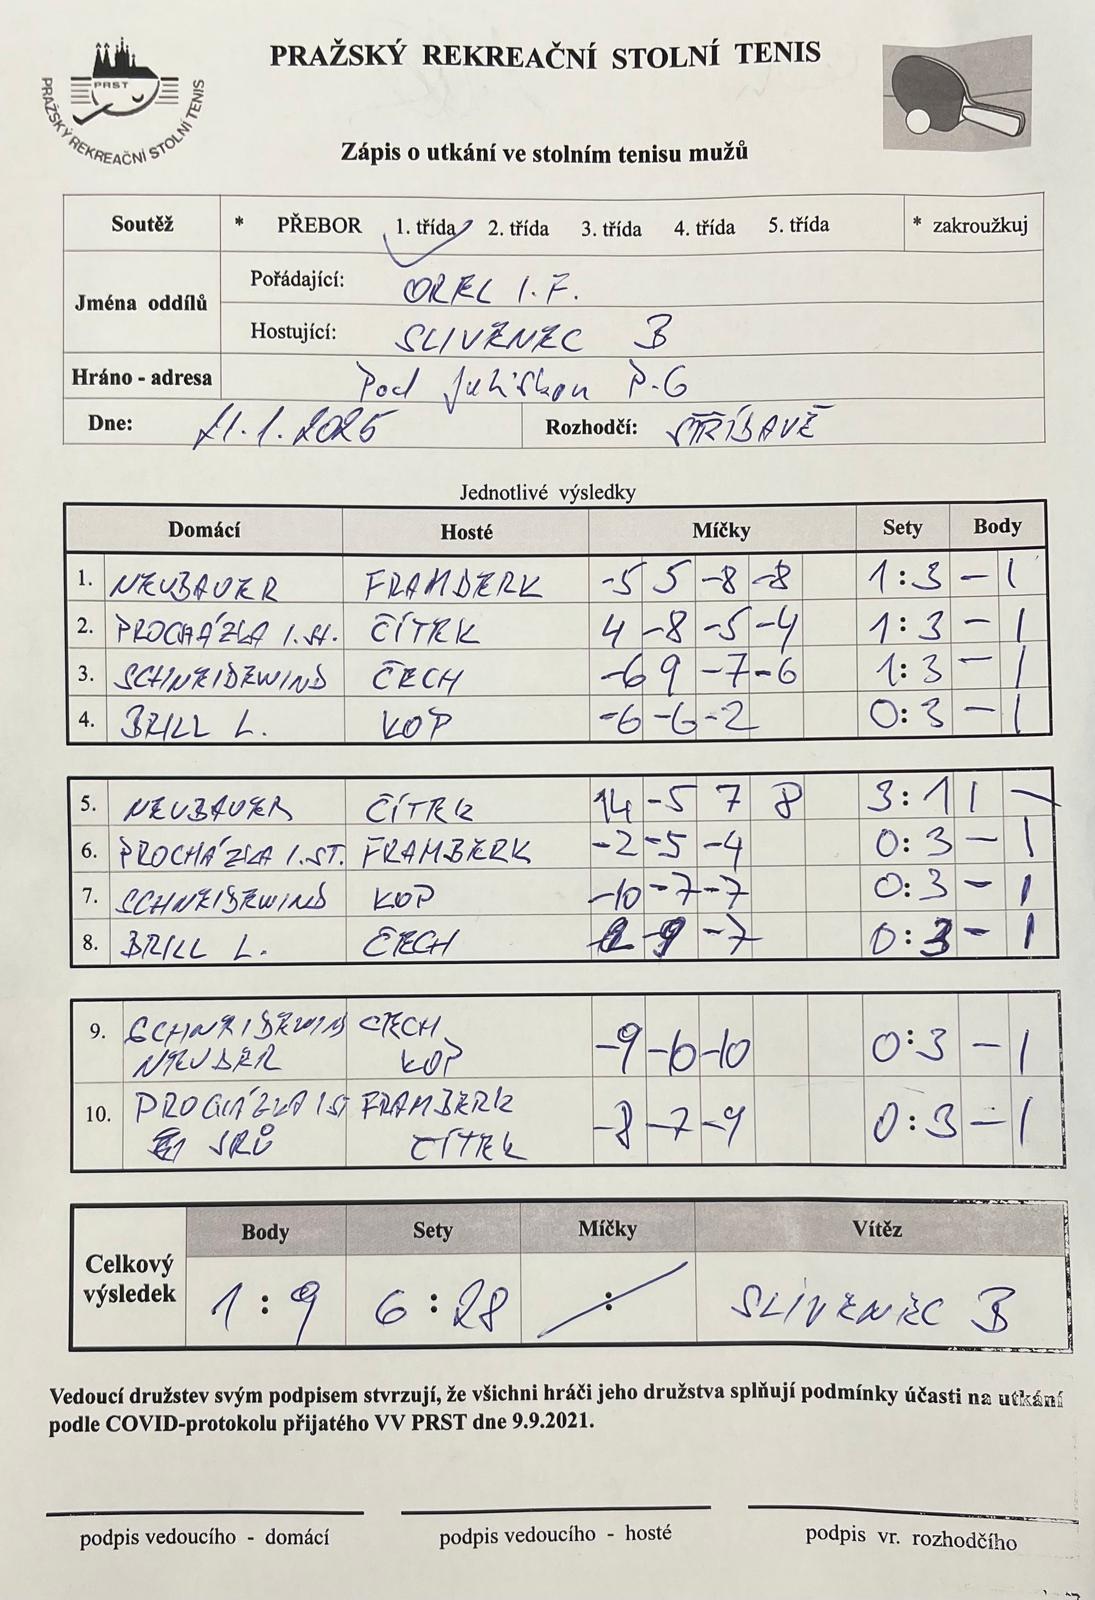 PRAŽSKÝ REKREAČNÍ STOLNÍ TENIS
PRST
PRAŽSKÝ REKREAČNÍ STOLNÍ TENIS
Zápis o utkání ve stolním tenisu mužů
Soutěž * PŘEBOR 1. třída 2. třída 3. třída 4. třída 5. třída * zakroužkuj
Jména oddílů
Pořádající: OREL I.F.
Hostující: SLIVENEC B
Hráno - adresa Pod Juliskou P-6
Dne: 21.1.2025 Rozhodčí: STŘÍBAVĚ
Jednotlivé výsledky
Domácí Hosté Míčky Sety Body
1. NEUBAUER FRAMBERK -5 5 -8 -8 1:3 - 1
2. PROCHÁZKA I.ST. ČÍTEK 4 -8 -5 -4 1:3 - 1
3. SCHNEIDEWIND ČECH -6 9 -7 -6 1:3 - 1
4. BRILL L. KOP -6 -6 -2 0:3 - 1
5. NEUBAUER ČÍTEK 14 -5 7 8 3:1 1 -
6. PROCHÁZKA I.ST. FRAMBERK -2 -5 -4 0:3 - 1
7. SCHNEIDEWIND KOP -10 -7 -7 0:3 - 1
8. BRILL L. ČECH -9 -7 0:3 - 1
9. SCHNEIDEWIND ČECH
NEUBER KOP -9 -6 -10 0:3 - 1
10. PROCHÁZKA I ST FRAMBERK
SRŮ ČÍTEK -8 -7 -9 0:3 - 1
Celkový výsledek
Body Sety Míčky Vítěz
1 : 9 6 : 28 : SLIVENEC B
Vedoucí družstev svým podpisem stvrzují, že všichni hráči jeho družstva splňují podmínky účasti na utkání
podle COVID-protokolu přijatého VV PRST dne 9.9.2021.
podpis vedoucího - domácí podpis vedoucího - hosté podpis vr. rozhodčího